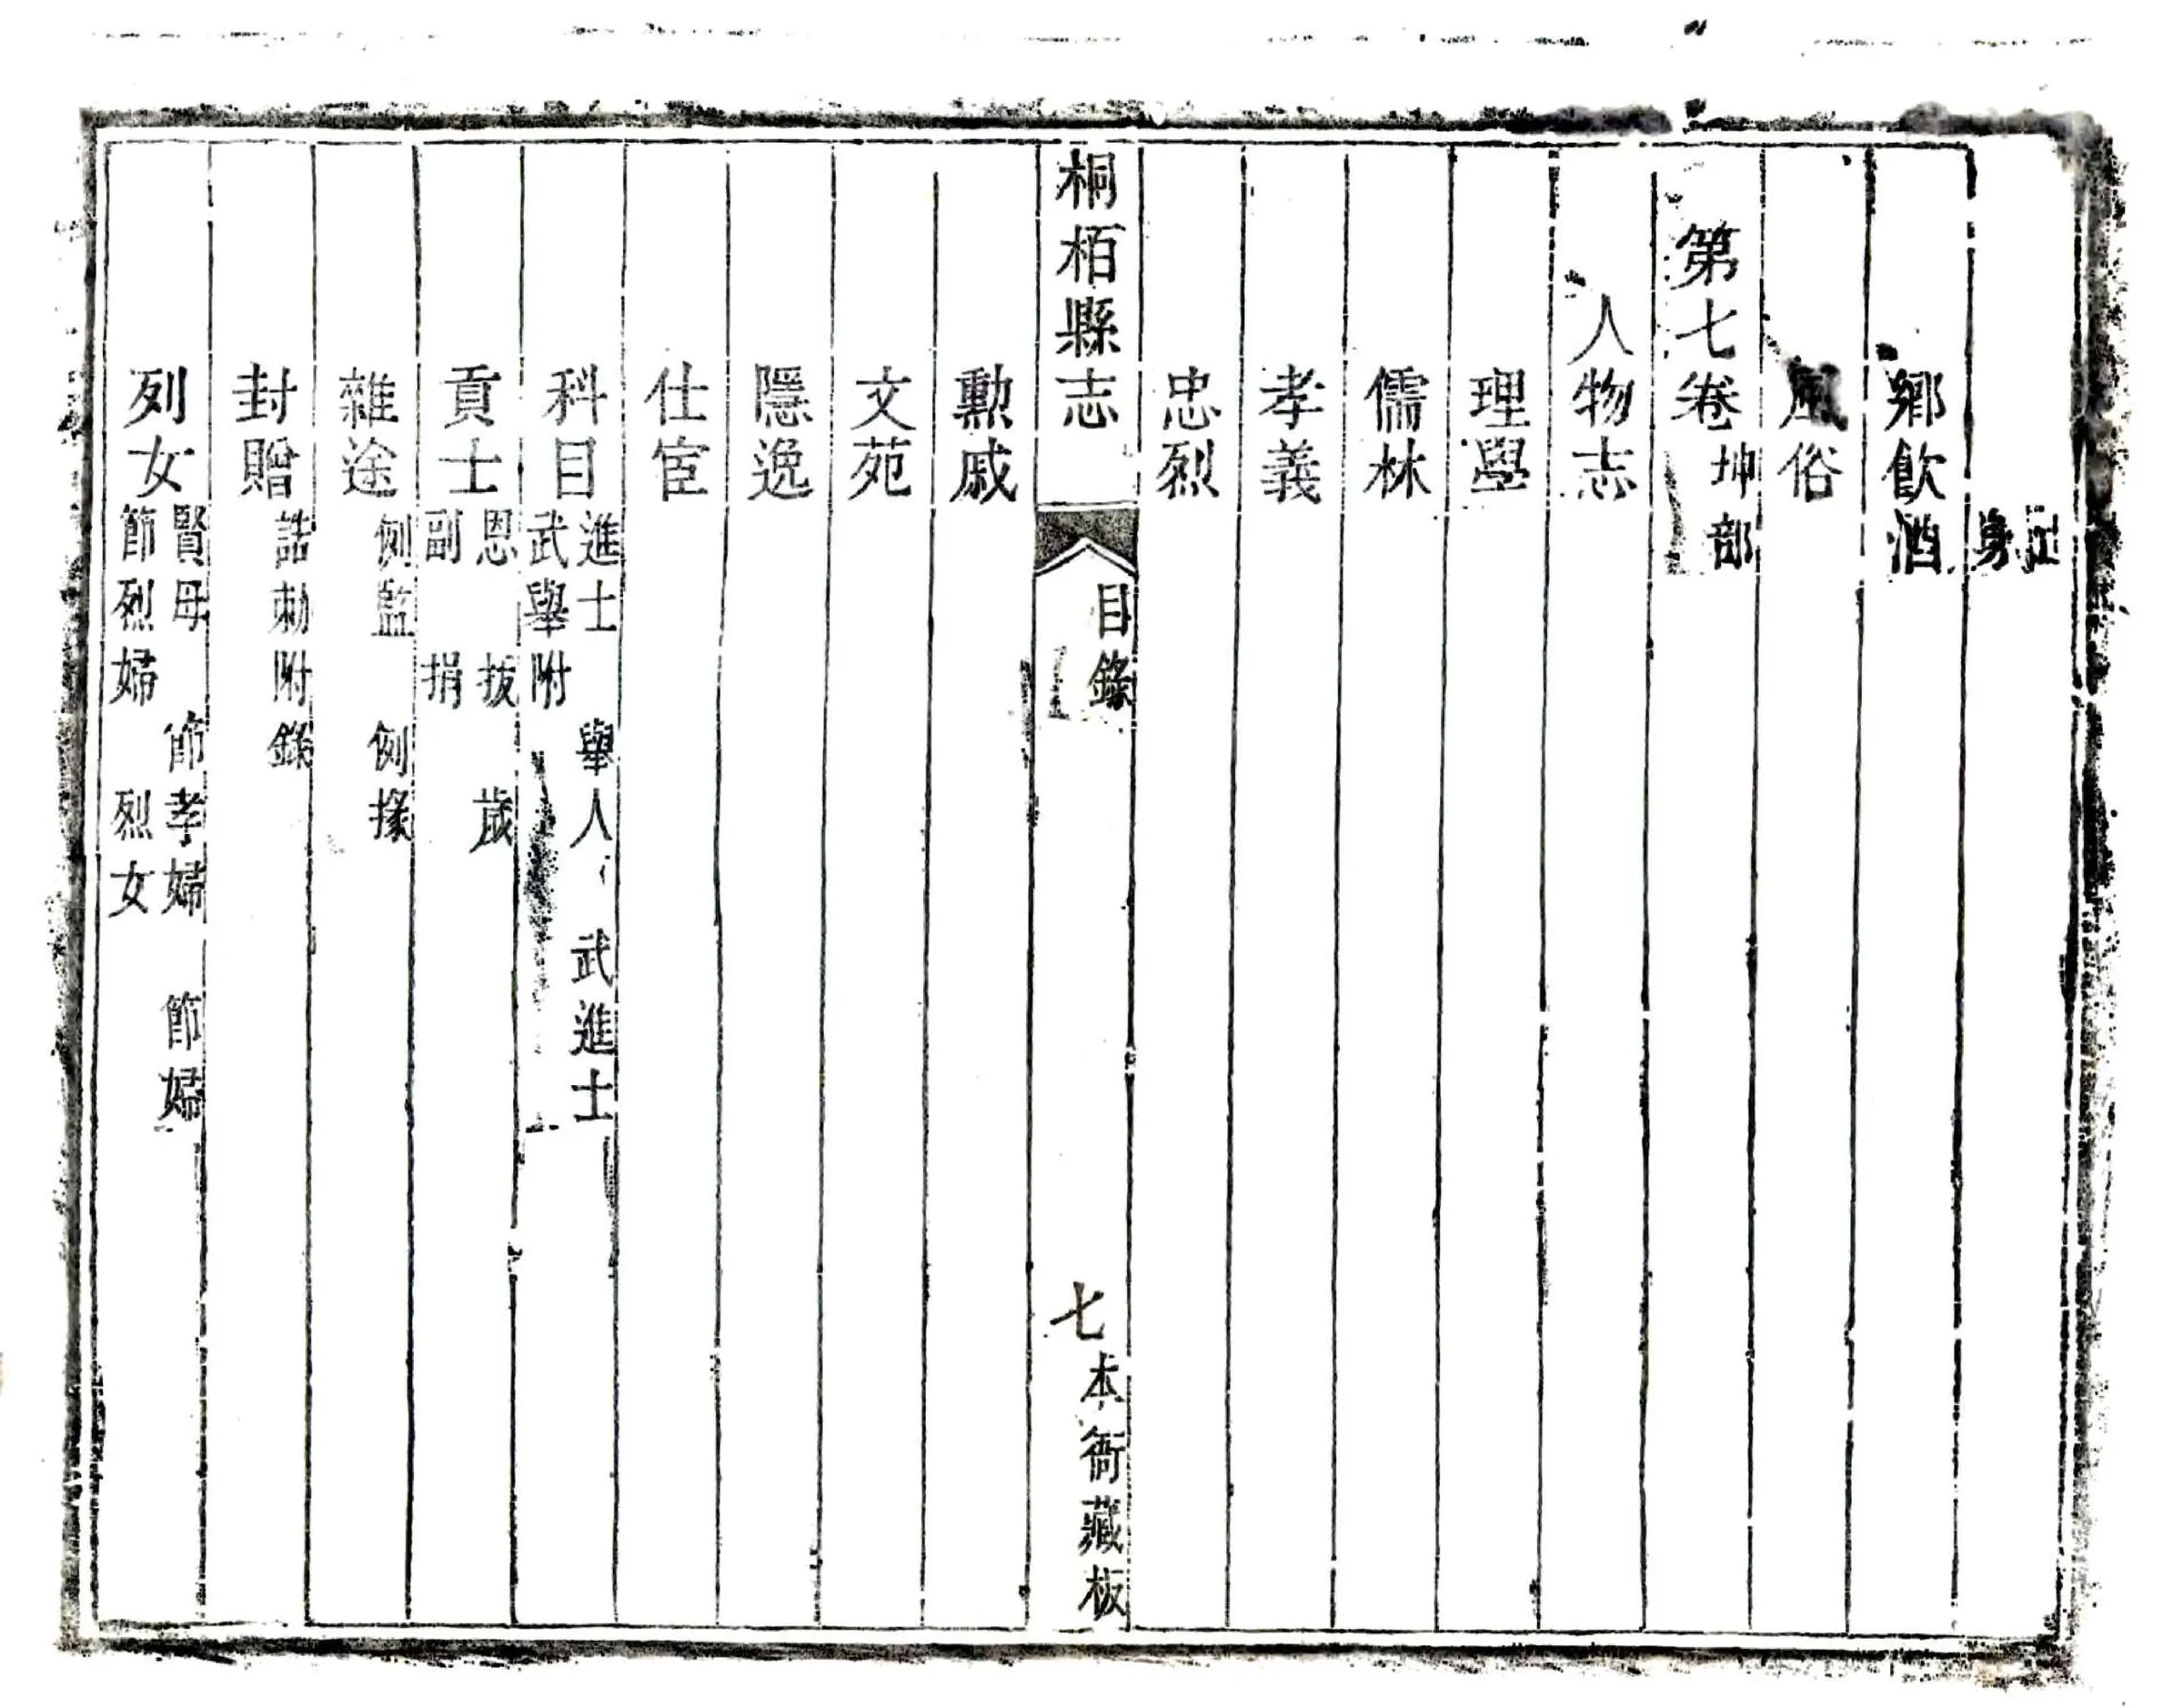 鄉飲酒
風俗
第七卷 坤部
人物志
理學
儒林
孝義
忠烈
桐栢縣志 目錄 七 本衙藏板
勲戚
文苑
隱逸
仕宦
科目 進士 舉人 武進士
武舉附
貢士 恩 拔 歲
副 捐
雜途 例監 例掾
封贈 誥勅附錄
列女 賢母 節孝婦 節婦
節烈婦 烈女